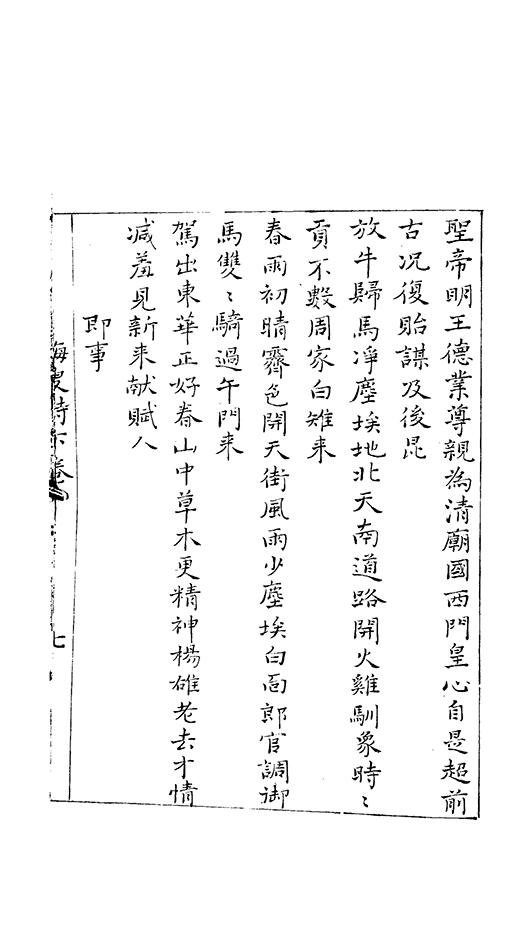 聖帝明王德業尊親為清廟國西門皇心自是超前
古況復貽謀及後昆
放牛歸馬淨塵埃地北天南道路開火雞馴象時〻
貢不數周家白雉来
春雨初晴霽色開天街風雨少塵埃白面郎官調御
馬雙〻騎過午門来
駕出東華正好春山中草木更精神楊雄老去才情
減羞見新来献賦人
即事
七